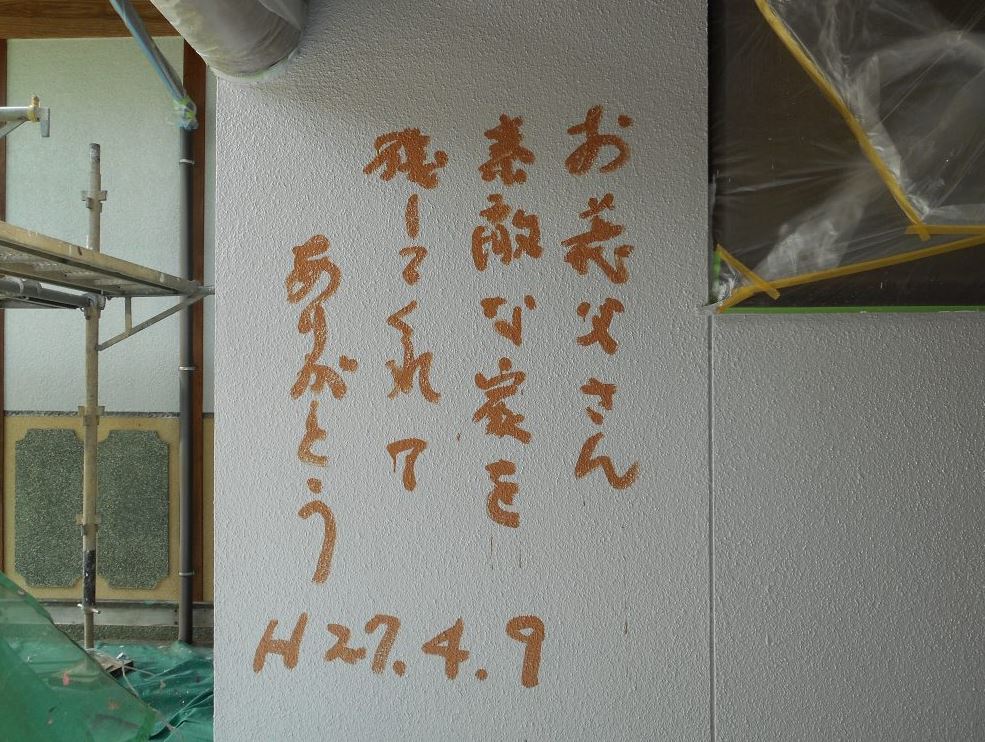 お義父さん
素敵な家を
残してくれて
ありがとう
H27.4.9